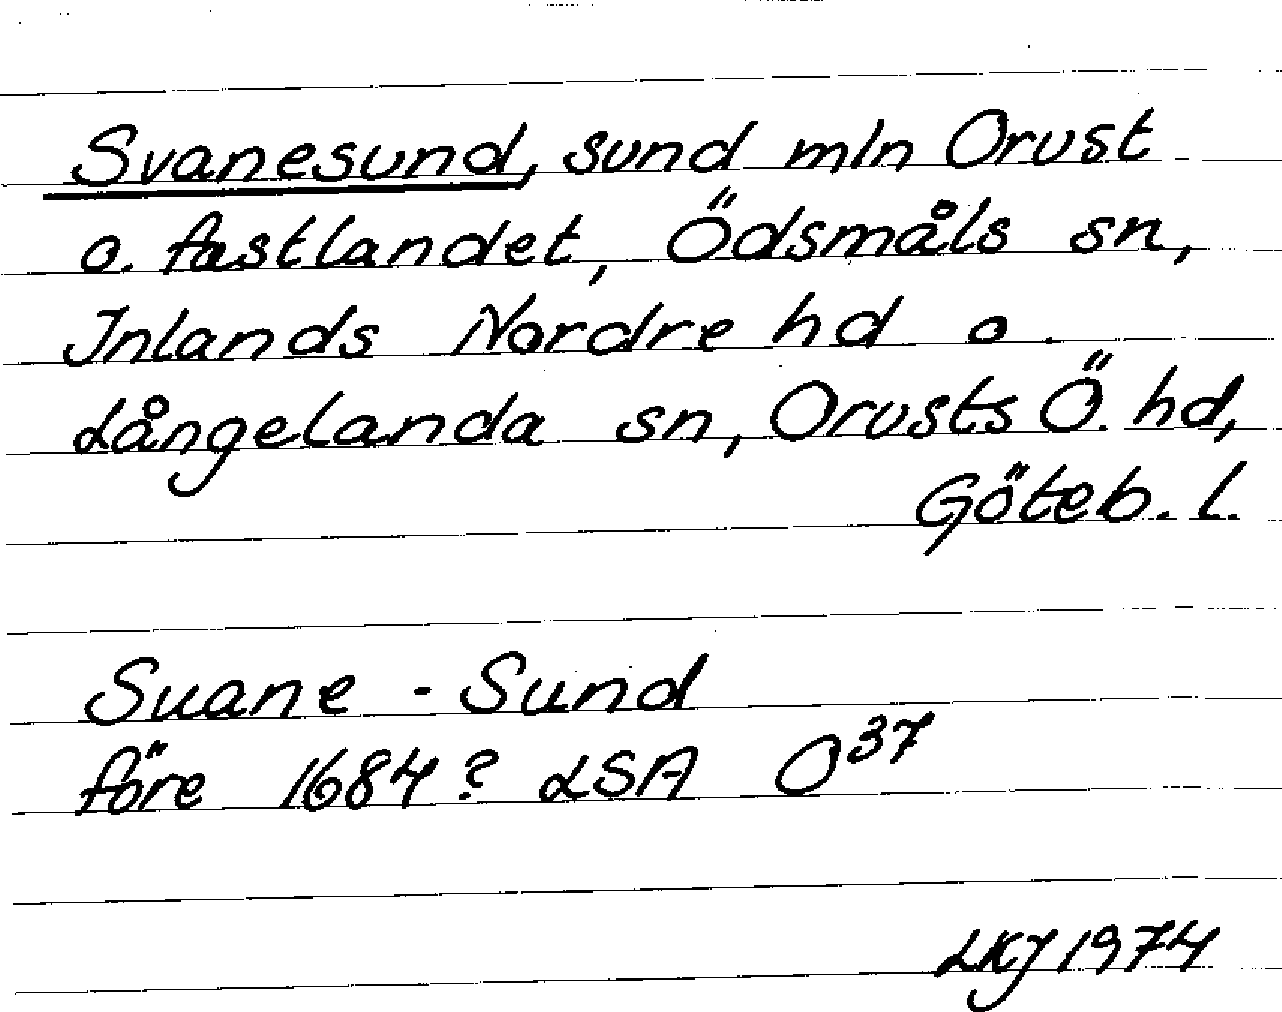 Svanesund, sund mln Orust
o. fastlandet, Ödsmåls sn,
Inlands Nordre hd o.
Långelanda sn, Orusts Ö. hd,
Göteb. l.
Suane - Sund
före 1684? LSA O37
LKJ 1974